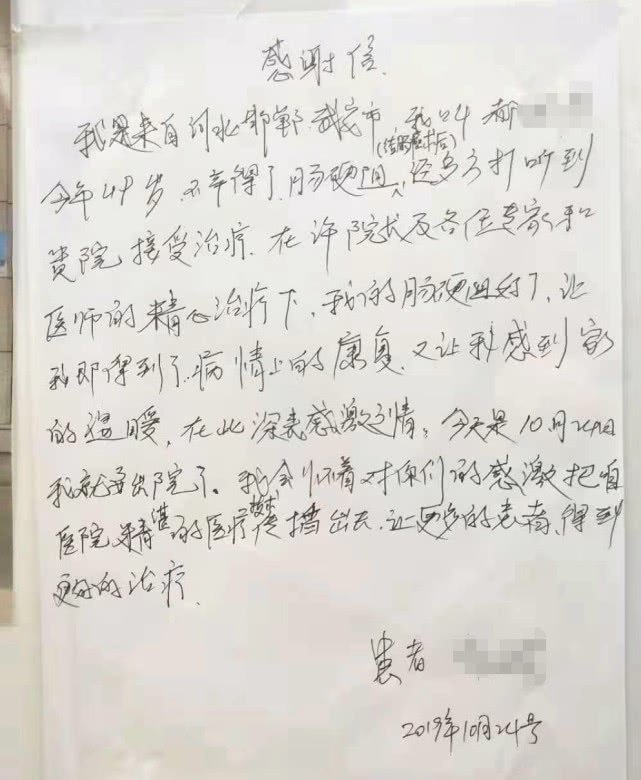 感谢信
我是来自河北邯郸武安市 我叫 郝
(结肠癌术后)
今年49岁,不幸得了肠梗阻,经多方打听到
贵院接受治疗.在许院长及各位专家和
医师的精心治疗下,我的肠梗阻好了,让
我即得到了病情上的康复,又让我感到家
的温暖,在此深表感激之情,今天是10月24日
我就要出院了。我会怀着对你们的感激把咱
医院精湛的医疗技术传播出去,让更多的患者,得到
更好的治疗.
患者
2019年10月24号